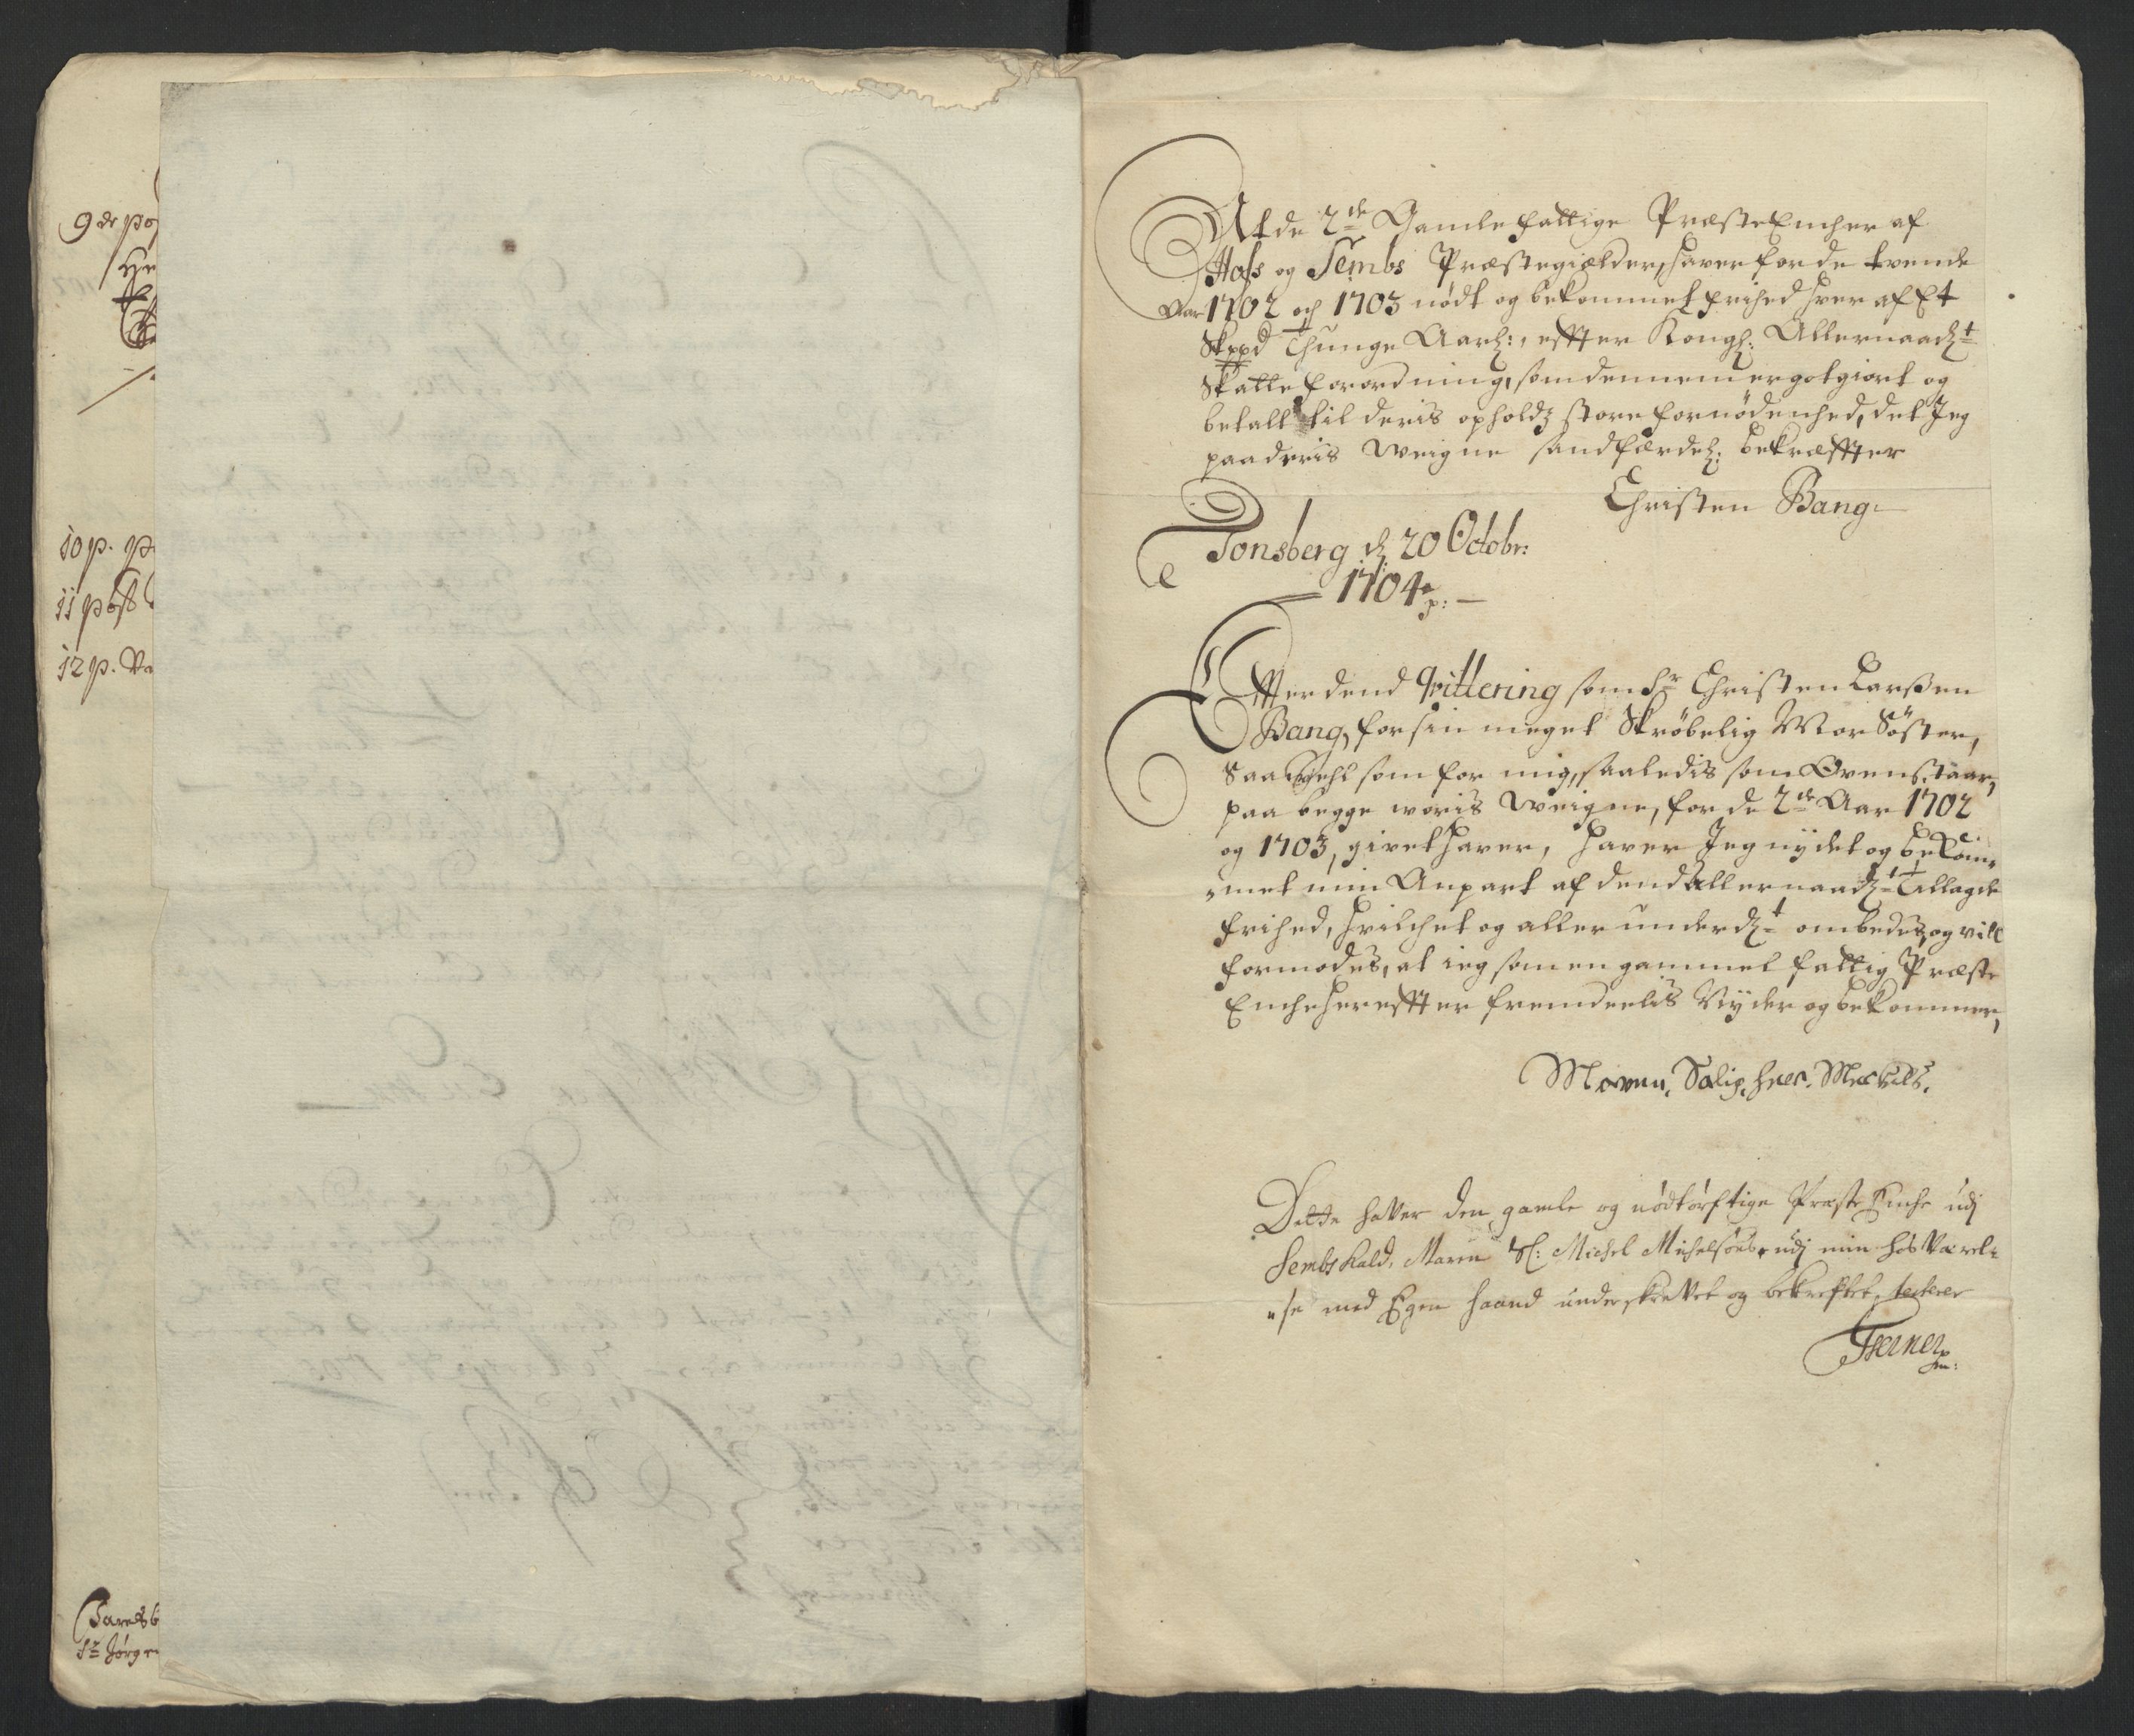 9de po
He
10 p. p
11 post
12 p. Va
Jareds b
Sr Jørgen
At de 2de Gamle fattige PræsteEncher af
Hofs og Sembs Præstegiælder, haver for de tvende
Aar 1702 och 1703 nødt og bekommet frihed hver af Et
Skppd Thunge Aarl:, effter Kongl: Allernaadt
Skatte forordning, som dennem er gotgiort og
betalt til deris opholdz store fornødenhed, det Jeg
paa deris weigne sandfærdel: bekræffter
Christen Bang
Tonsberg d 20 Octobr:
1704 p:
Effter dend Qvittering som hr Christen Larsen
Bang, for sin meget Skrøbelig Mor Søster,
Saa vehl som for mig, saaledis som Ovenstaar,
paa begge woris weigne, for de 2de Aar 1702
og 1703, givet haver, haver Jeg nydet og bekom¬
met min Anpart af dend Allernaadt Tillagde
frihed, hvilchet og aller underdt ombedes, og vill
formodes, at ieg som en gammel fattig Præste
Enche hereffter fremdeelis Nyder og bekommer,
Maren, Salig. her. Mickels.
Dette haver den gamle og nødtørftige Præste Enche udj
Sembs Kald, Maren Sl: Michel Michelsøns, udj min hos Værel¬
se med Egen haand underskrevet og bekreftet, testerer